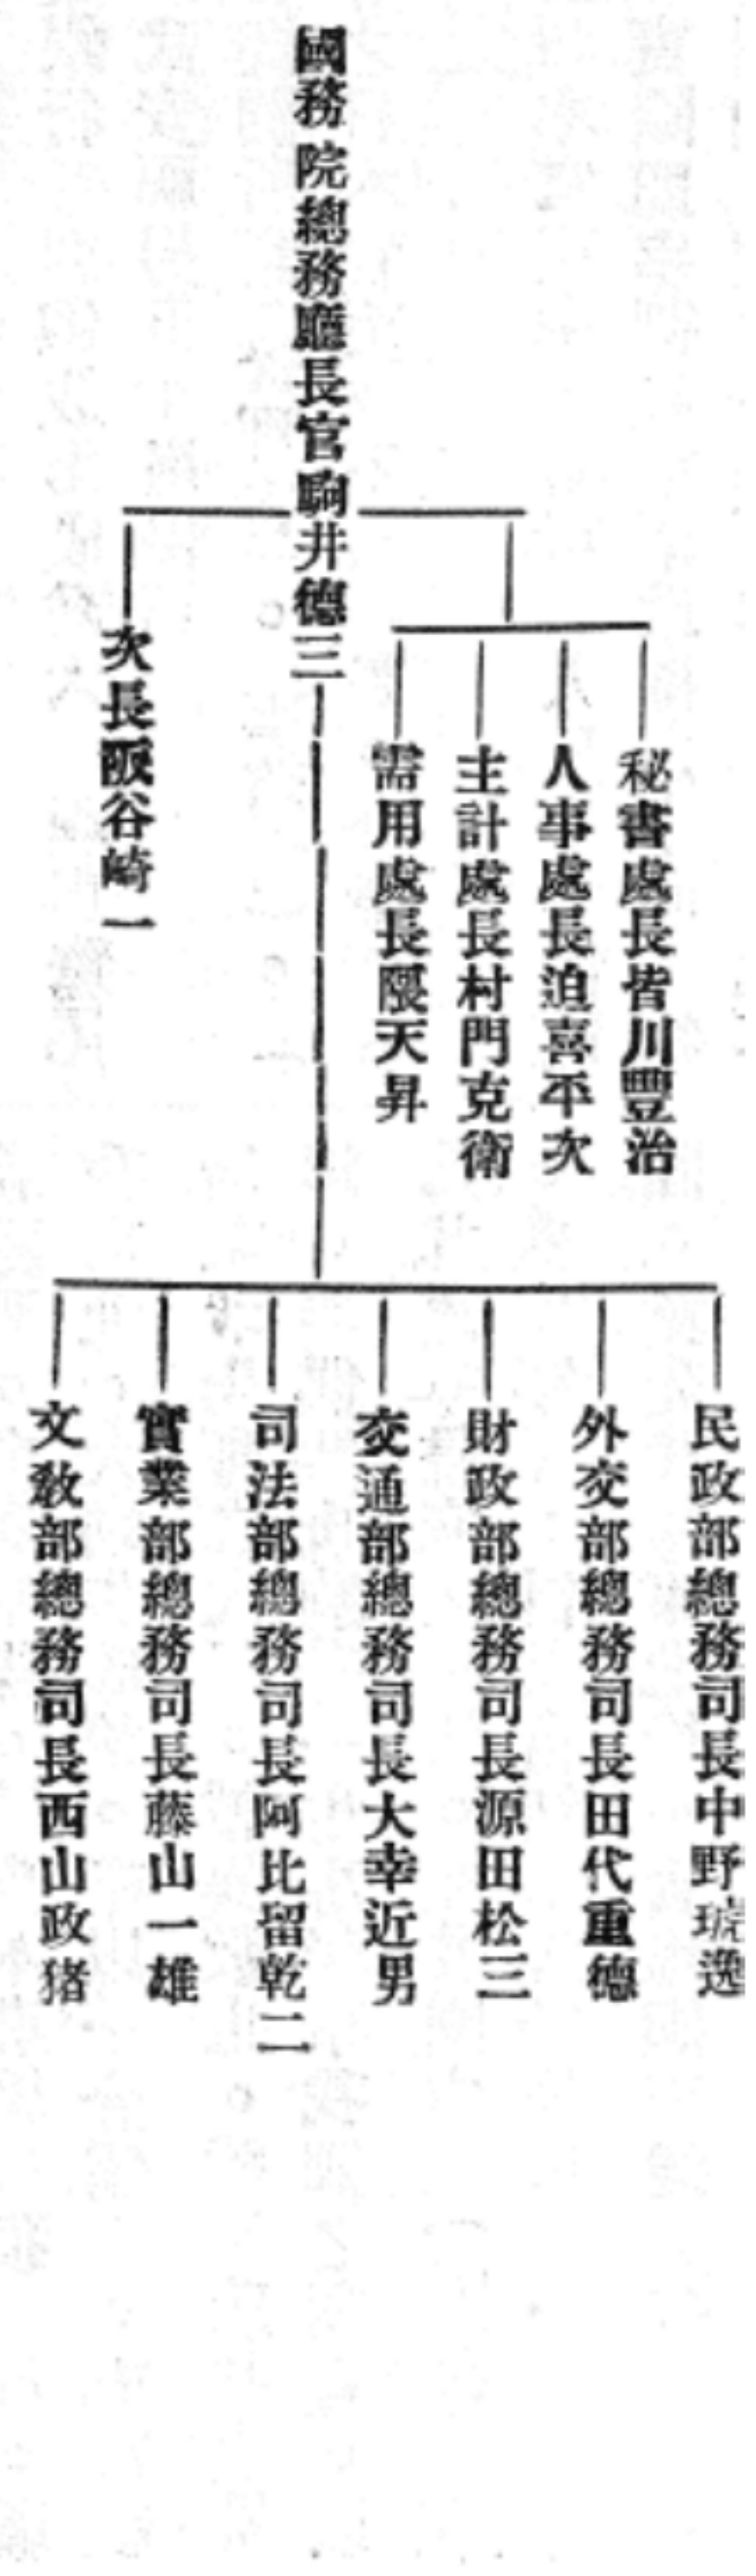 國務院總務廳長官駒井德三
秘書處長皆川豐治
人事處長迫喜平次
主計處長村門克衛
需用處長隈天昇
次長阪谷崎一
民政部總務司長中野琥逸
外交部總務司長田代重德
財政部總務司長源田松三
交通部總務司長大幸近男
司法部總務司長阿比留乾二
實業部總務司長藤山一雄
文敎部總務司長西山政猪